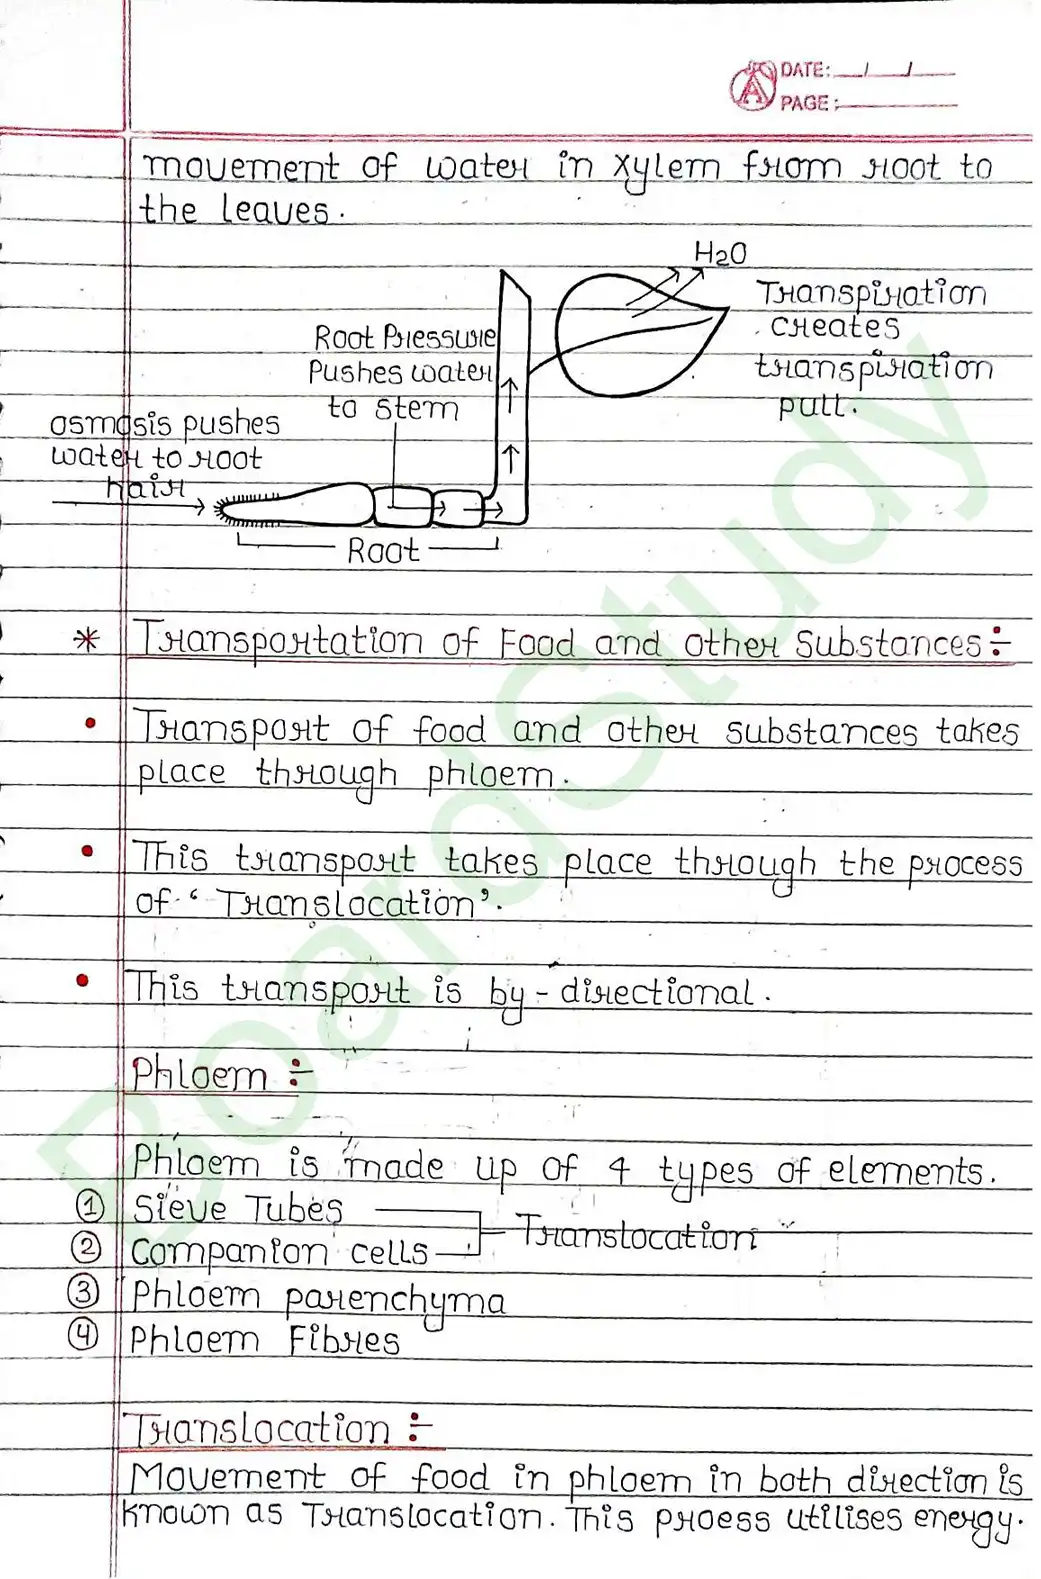 DATE: __/__/__
PAGE:
movement of water in xylem from root to
the leaves.
H2O
Transpiration
creates
transpiration
pull.
Root Pressure
Pushes water
to stem
osmosis pushes
water to root
hair
Root
* Transportation of Food and other Substances:-
• Transport of food and other substances takes
place through phloem.
• This transport takes place through the process
of ‘Translocation’.
• This transport is by-directional.
Phloem :-
Phloem is made up of 4 types of elements.
① Sieve Tubes
② Companion cells
Translocation
③ Phloem parenchyma
④ Phloem Fibres
Translocation :-
Movement of food in phloem in both direction is
known as Translocation. This proess utilises energy.
BoardStudy